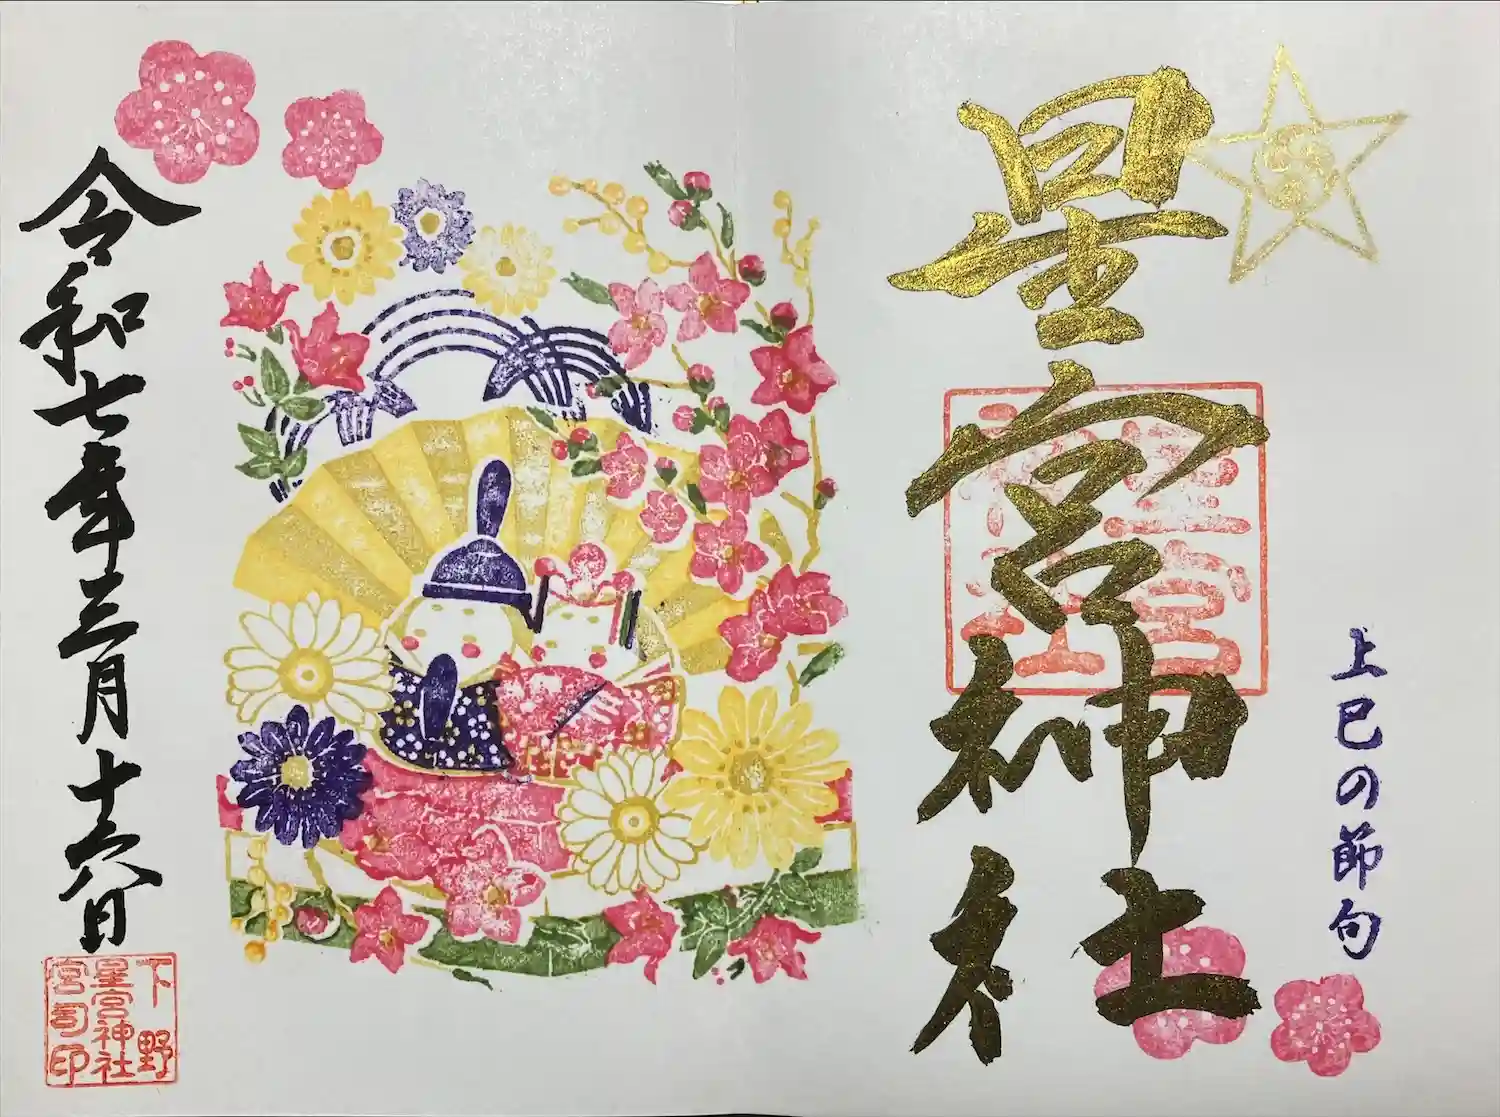 上巳の節句
星宮神社
令和七年三月十六日
下野
星宮神社
宮司印